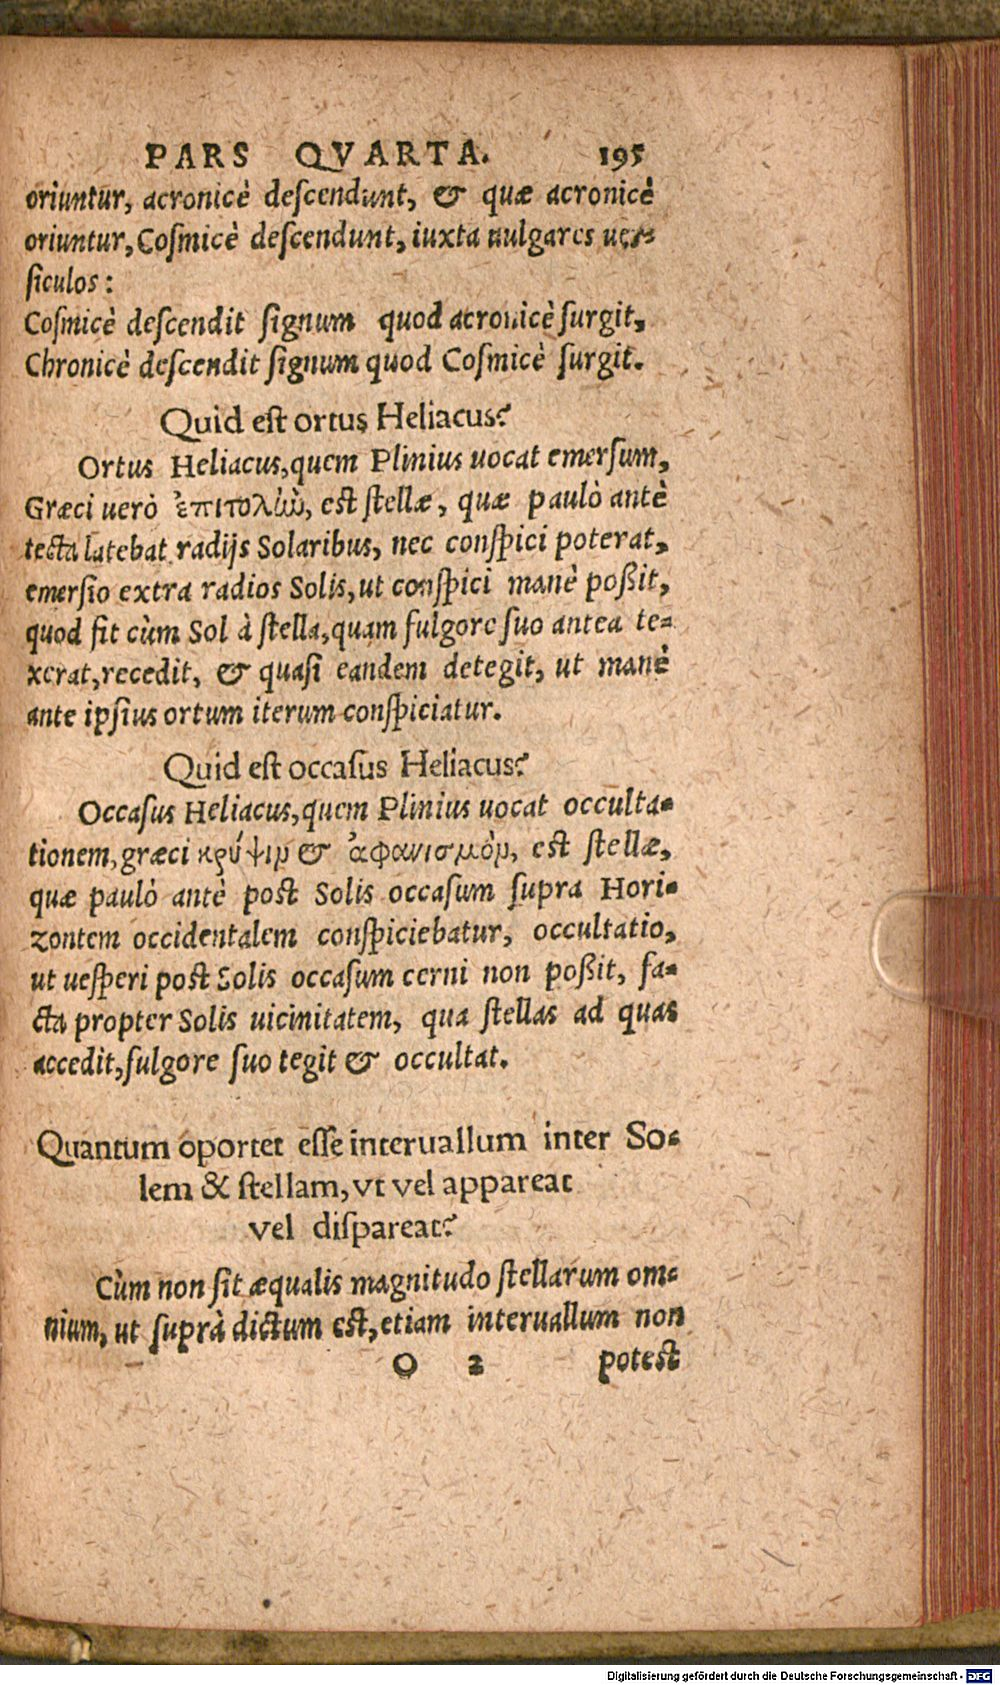 PARS QVARTA. 195
oriuntur, acronicè deſcendunt, & quæ acronicè
oriuntur, Coſmicè deſcendunt, iuxta uulgares uer-
ſiculos:
Coſmicè deſcendit ſignum quod acronicè ſurgit,
Chronicè deſcendit ſignum quod Coſmicè ſurgit.
Quid eſt ortus Heliacus?
Ortus Heliacus, quem Plinius uocat emerſum,
Græci uerò ἐπιτολὴν, eſt ſtellæ, quæ paulò antè
tecta latebat radijs Solaribus, nec conſpici poterat,
emerſio extra radios Solis, ut conſpici manè poßit,
quod fit cùm Sol à ſtella, quam fulgore ſuo antea te-
xerat, recedit, & quaſi eandem detegit, ut manè
ante ipſius ortum iterum conſpiciatur.
Quid eſt occaſus Heliacus?
Occaſus Heliacus, quem Plinius uocat occulta-
tionem, græci κρύψιν & ἀφανισμὸν, eſt ſtellæ,
quæ paulò antè poſt Solis occaſum ſupra Hori-
zontem occidentalem conſpiciebatur, occultatio,
ut ueſperi poſt Solis occaſum cerni non poßit, fa-
cta propter Solis uicinitatem, qua ſtellas ad quas
accedit, fulgore ſuo tegit & occultat.
Quantum oportet eſſe interuallum inter So-
lem & ſtellam, vt vel appareat
vel diſpareat?
Cùm non ſit æqualis magnitudo ſtellarum om-
nium, ut ſuprà dictum eſt, etiam interuallum non
O 2 poteſt
Digitalisierung gefördert durch die Deutsche Forschungsgemeinschaft - DFG